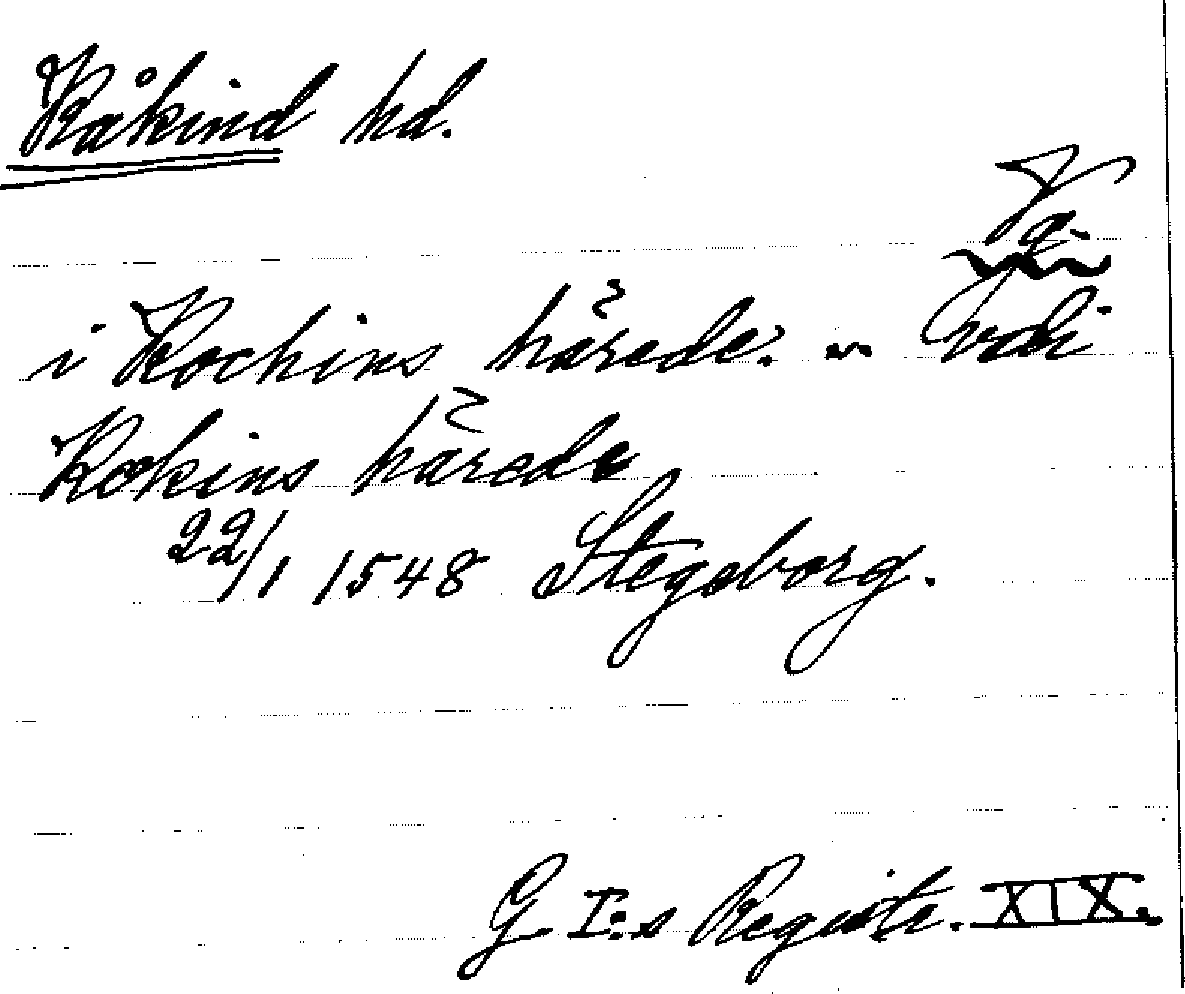 Kåkind hd.
Vg.
i Kochins härede. — vdi
Kokins härede
22/1 1548 Stegeborg.
G. I:s Registr. XIX.